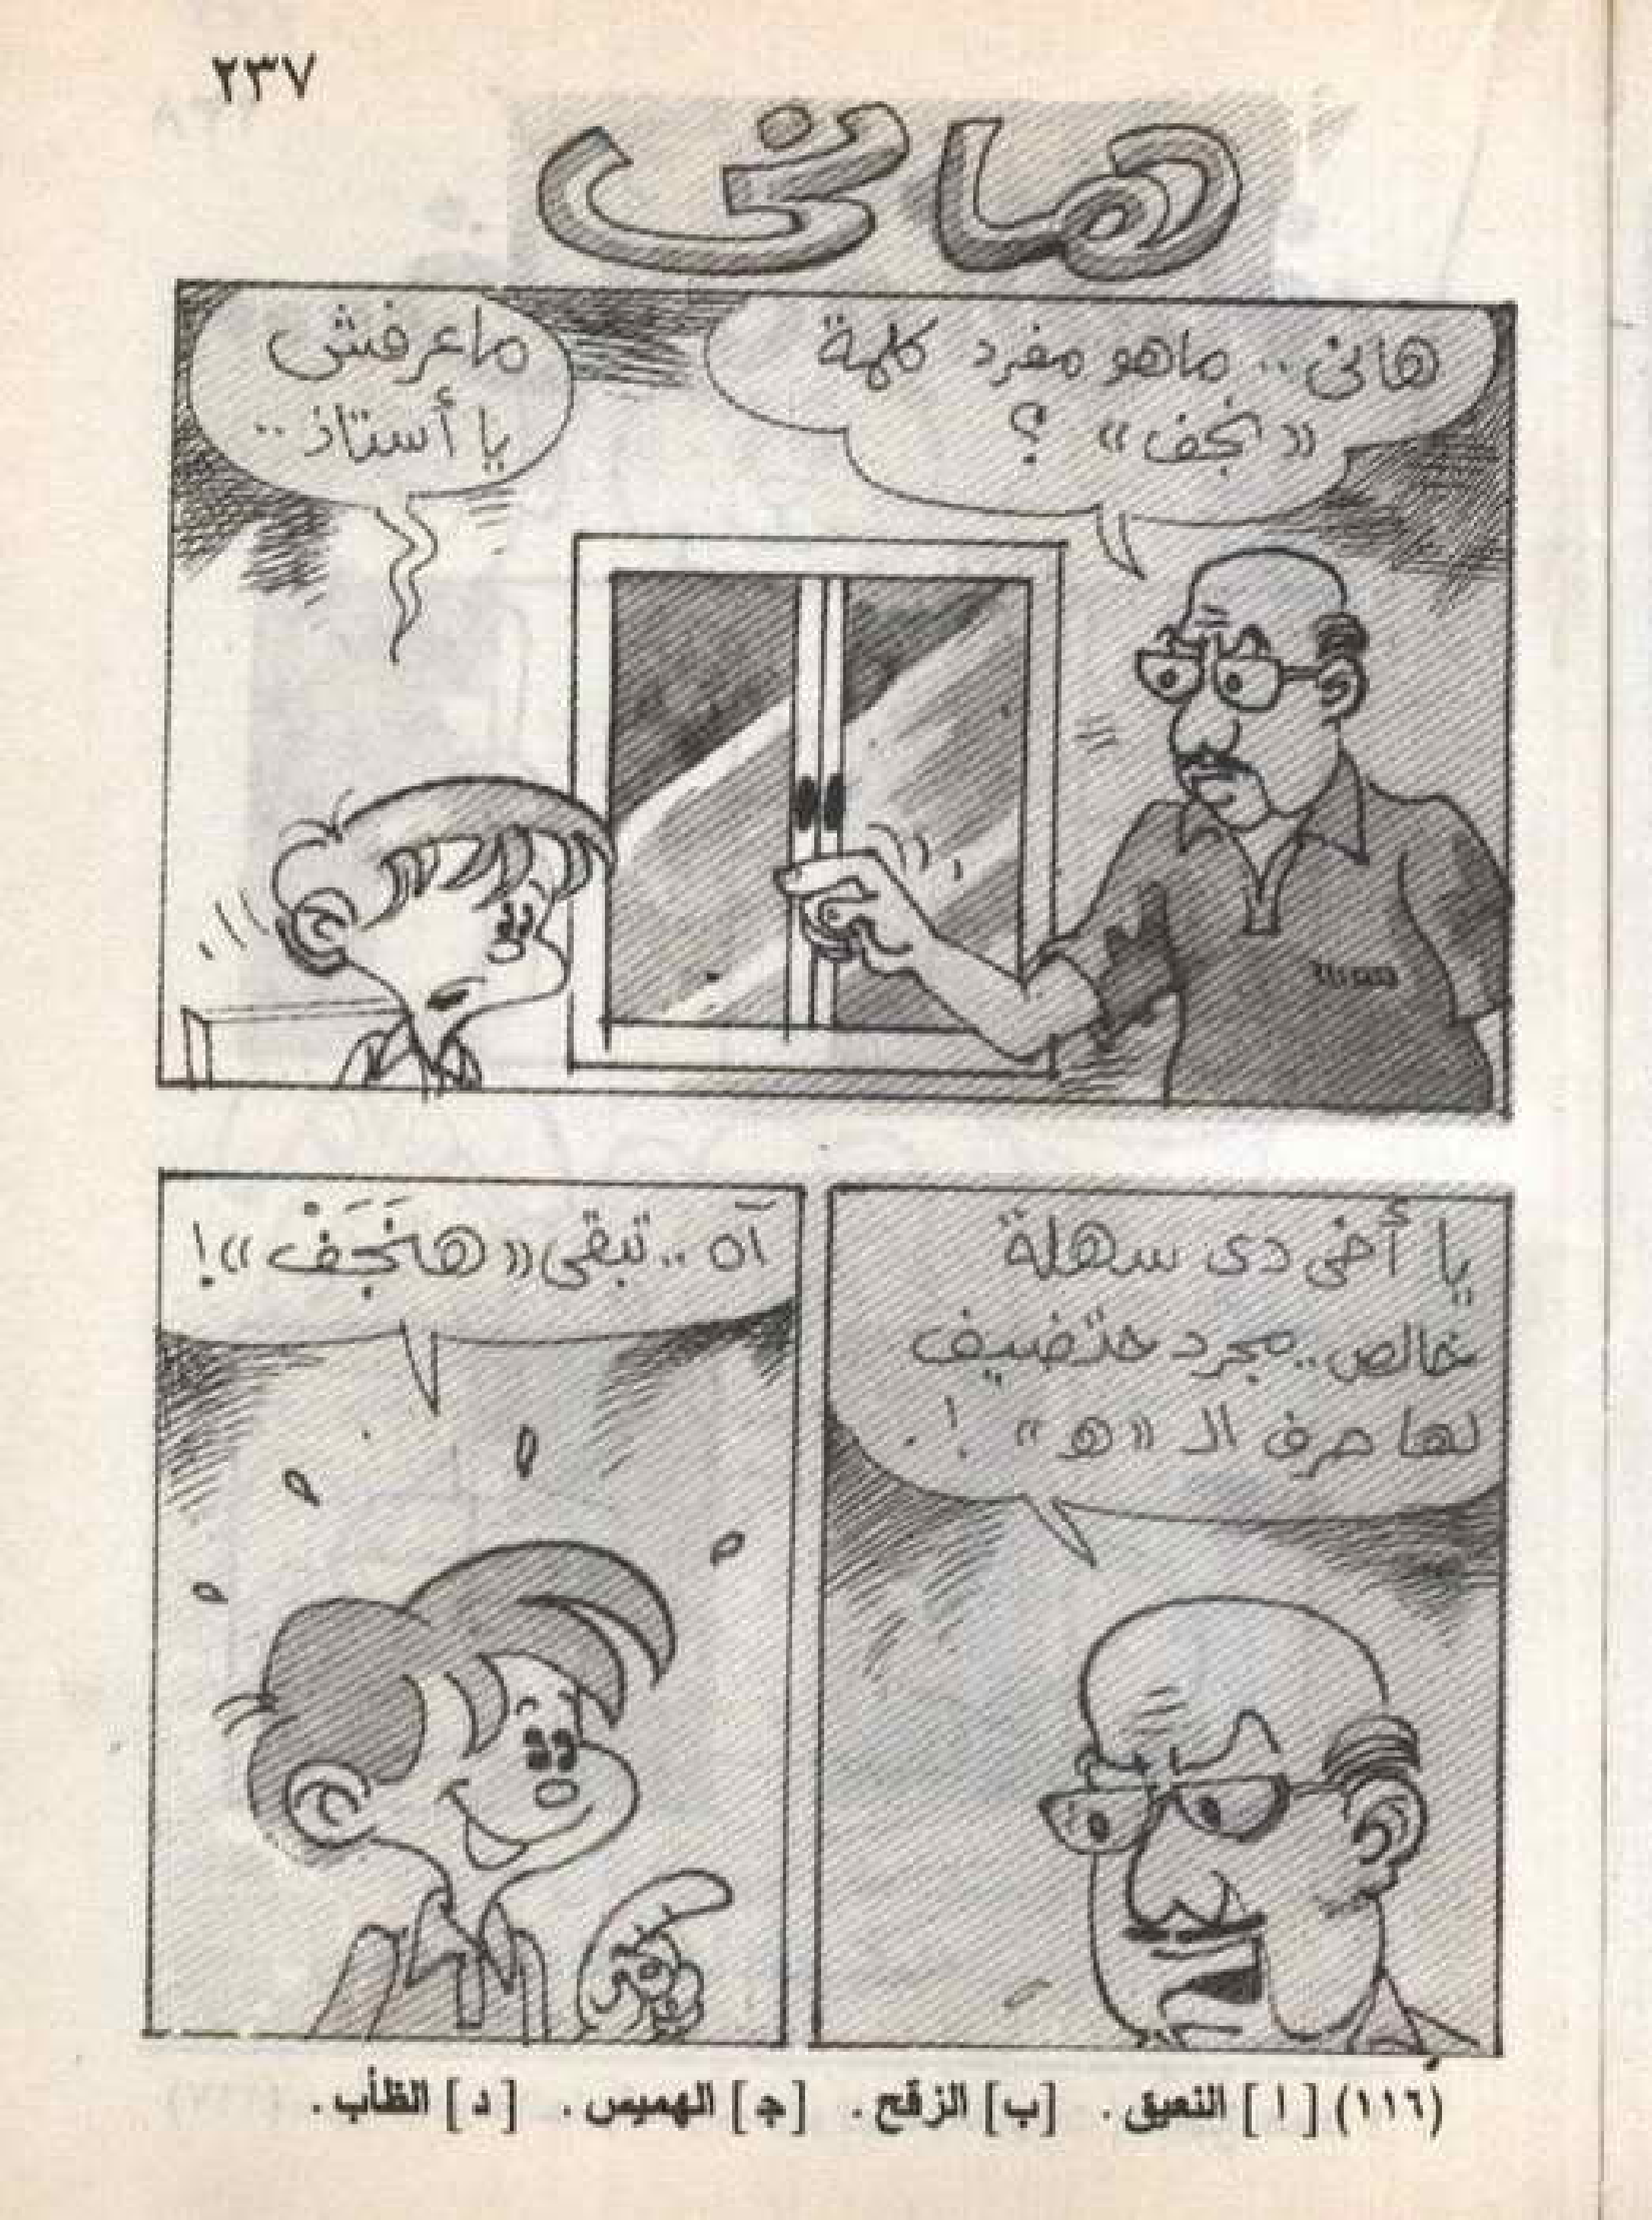 ٢٣٧
هانى
هانى.. ماهو مفرد كلمة
«نجف» ؟
ماعرفش
يا أستاذ..
يا أخى دى سهلة
خالص.. مجرد حتضيف
لها حرف الـ «هـ» !.
آه.. تبقى «هَنَجَفْ»!
(١١٦) [ ا ] النعيق. [ب] الزقح. [جـ] الهميس. [ د ] الظأب.